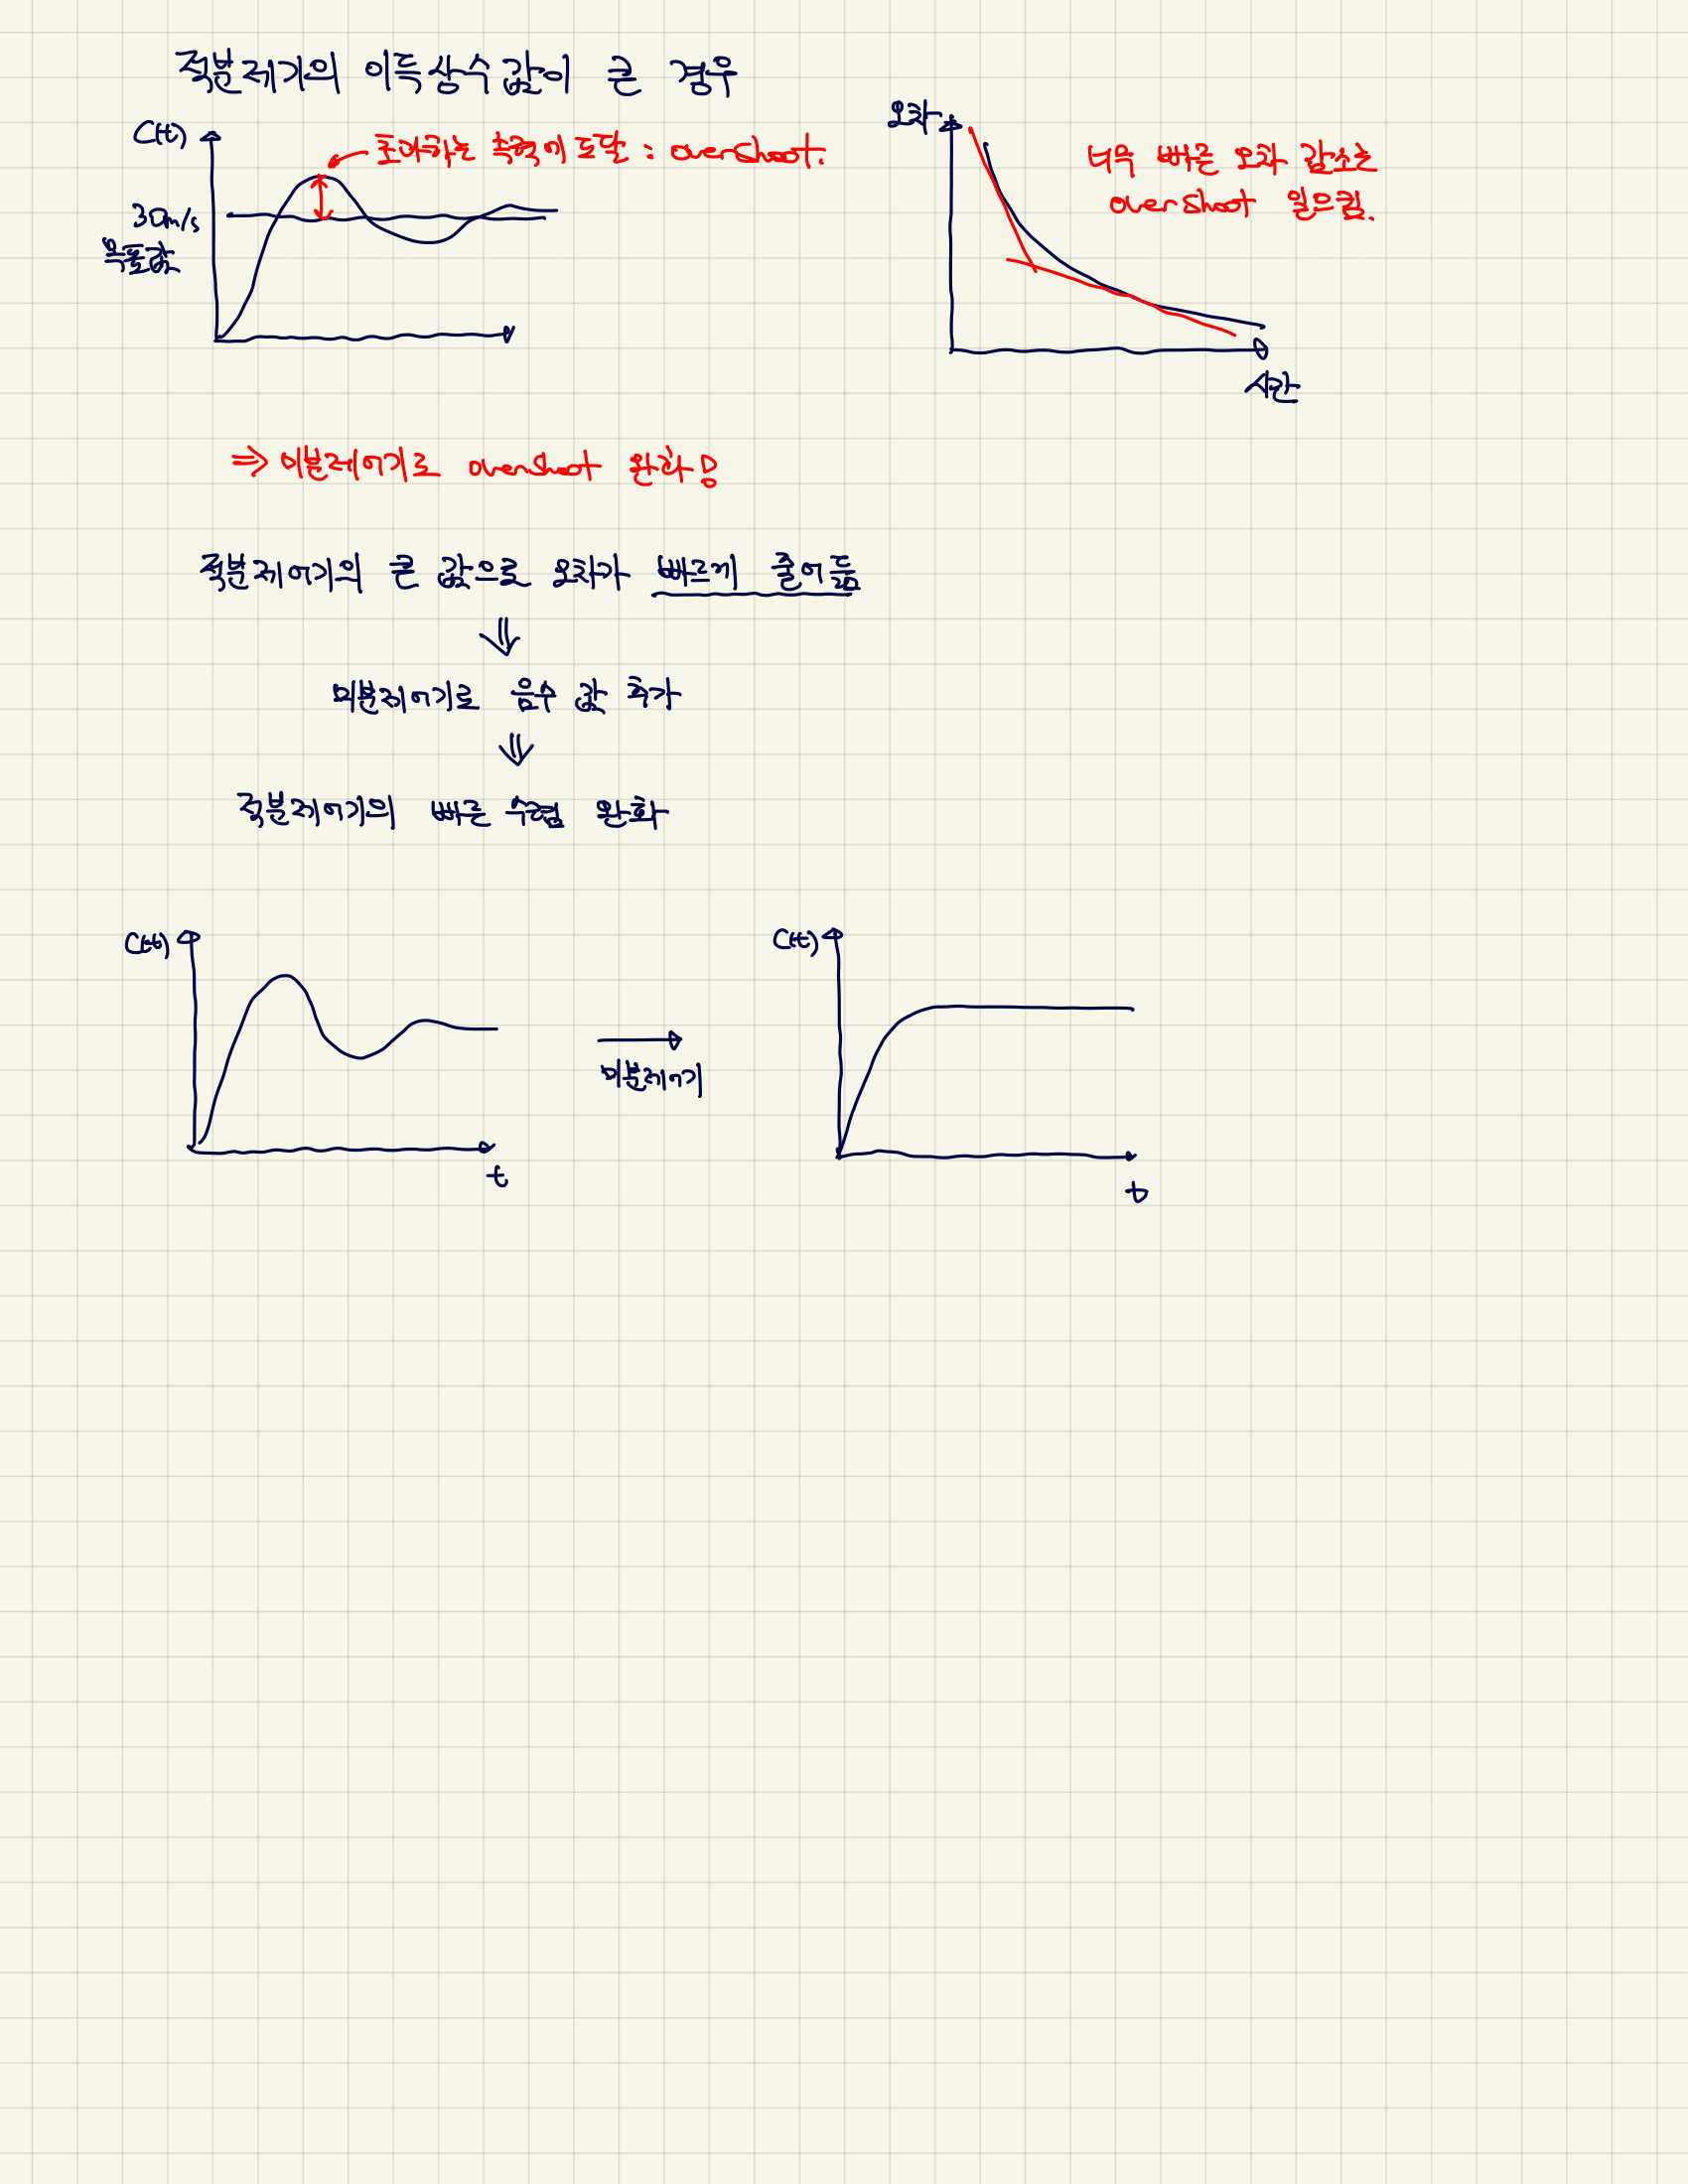 적분제기의 이득상수값이 큰 경우
C(t)
초과하는 속력에 도달 : overshoot.
30m/s
목푯값
오차
너무 빠른 오차 감소는
overshoot 일으킴.
시간
⇒ 미분제어기로 overshoot 완화!
적분제어기의 큰 값으로 오차가 빠르게 줄어듦
⇓
미분제어기로 음수 값 추가
⇓
적분제어기의 빠른 수렴 완화
C(t)
t
미분제어기
C(t)
t